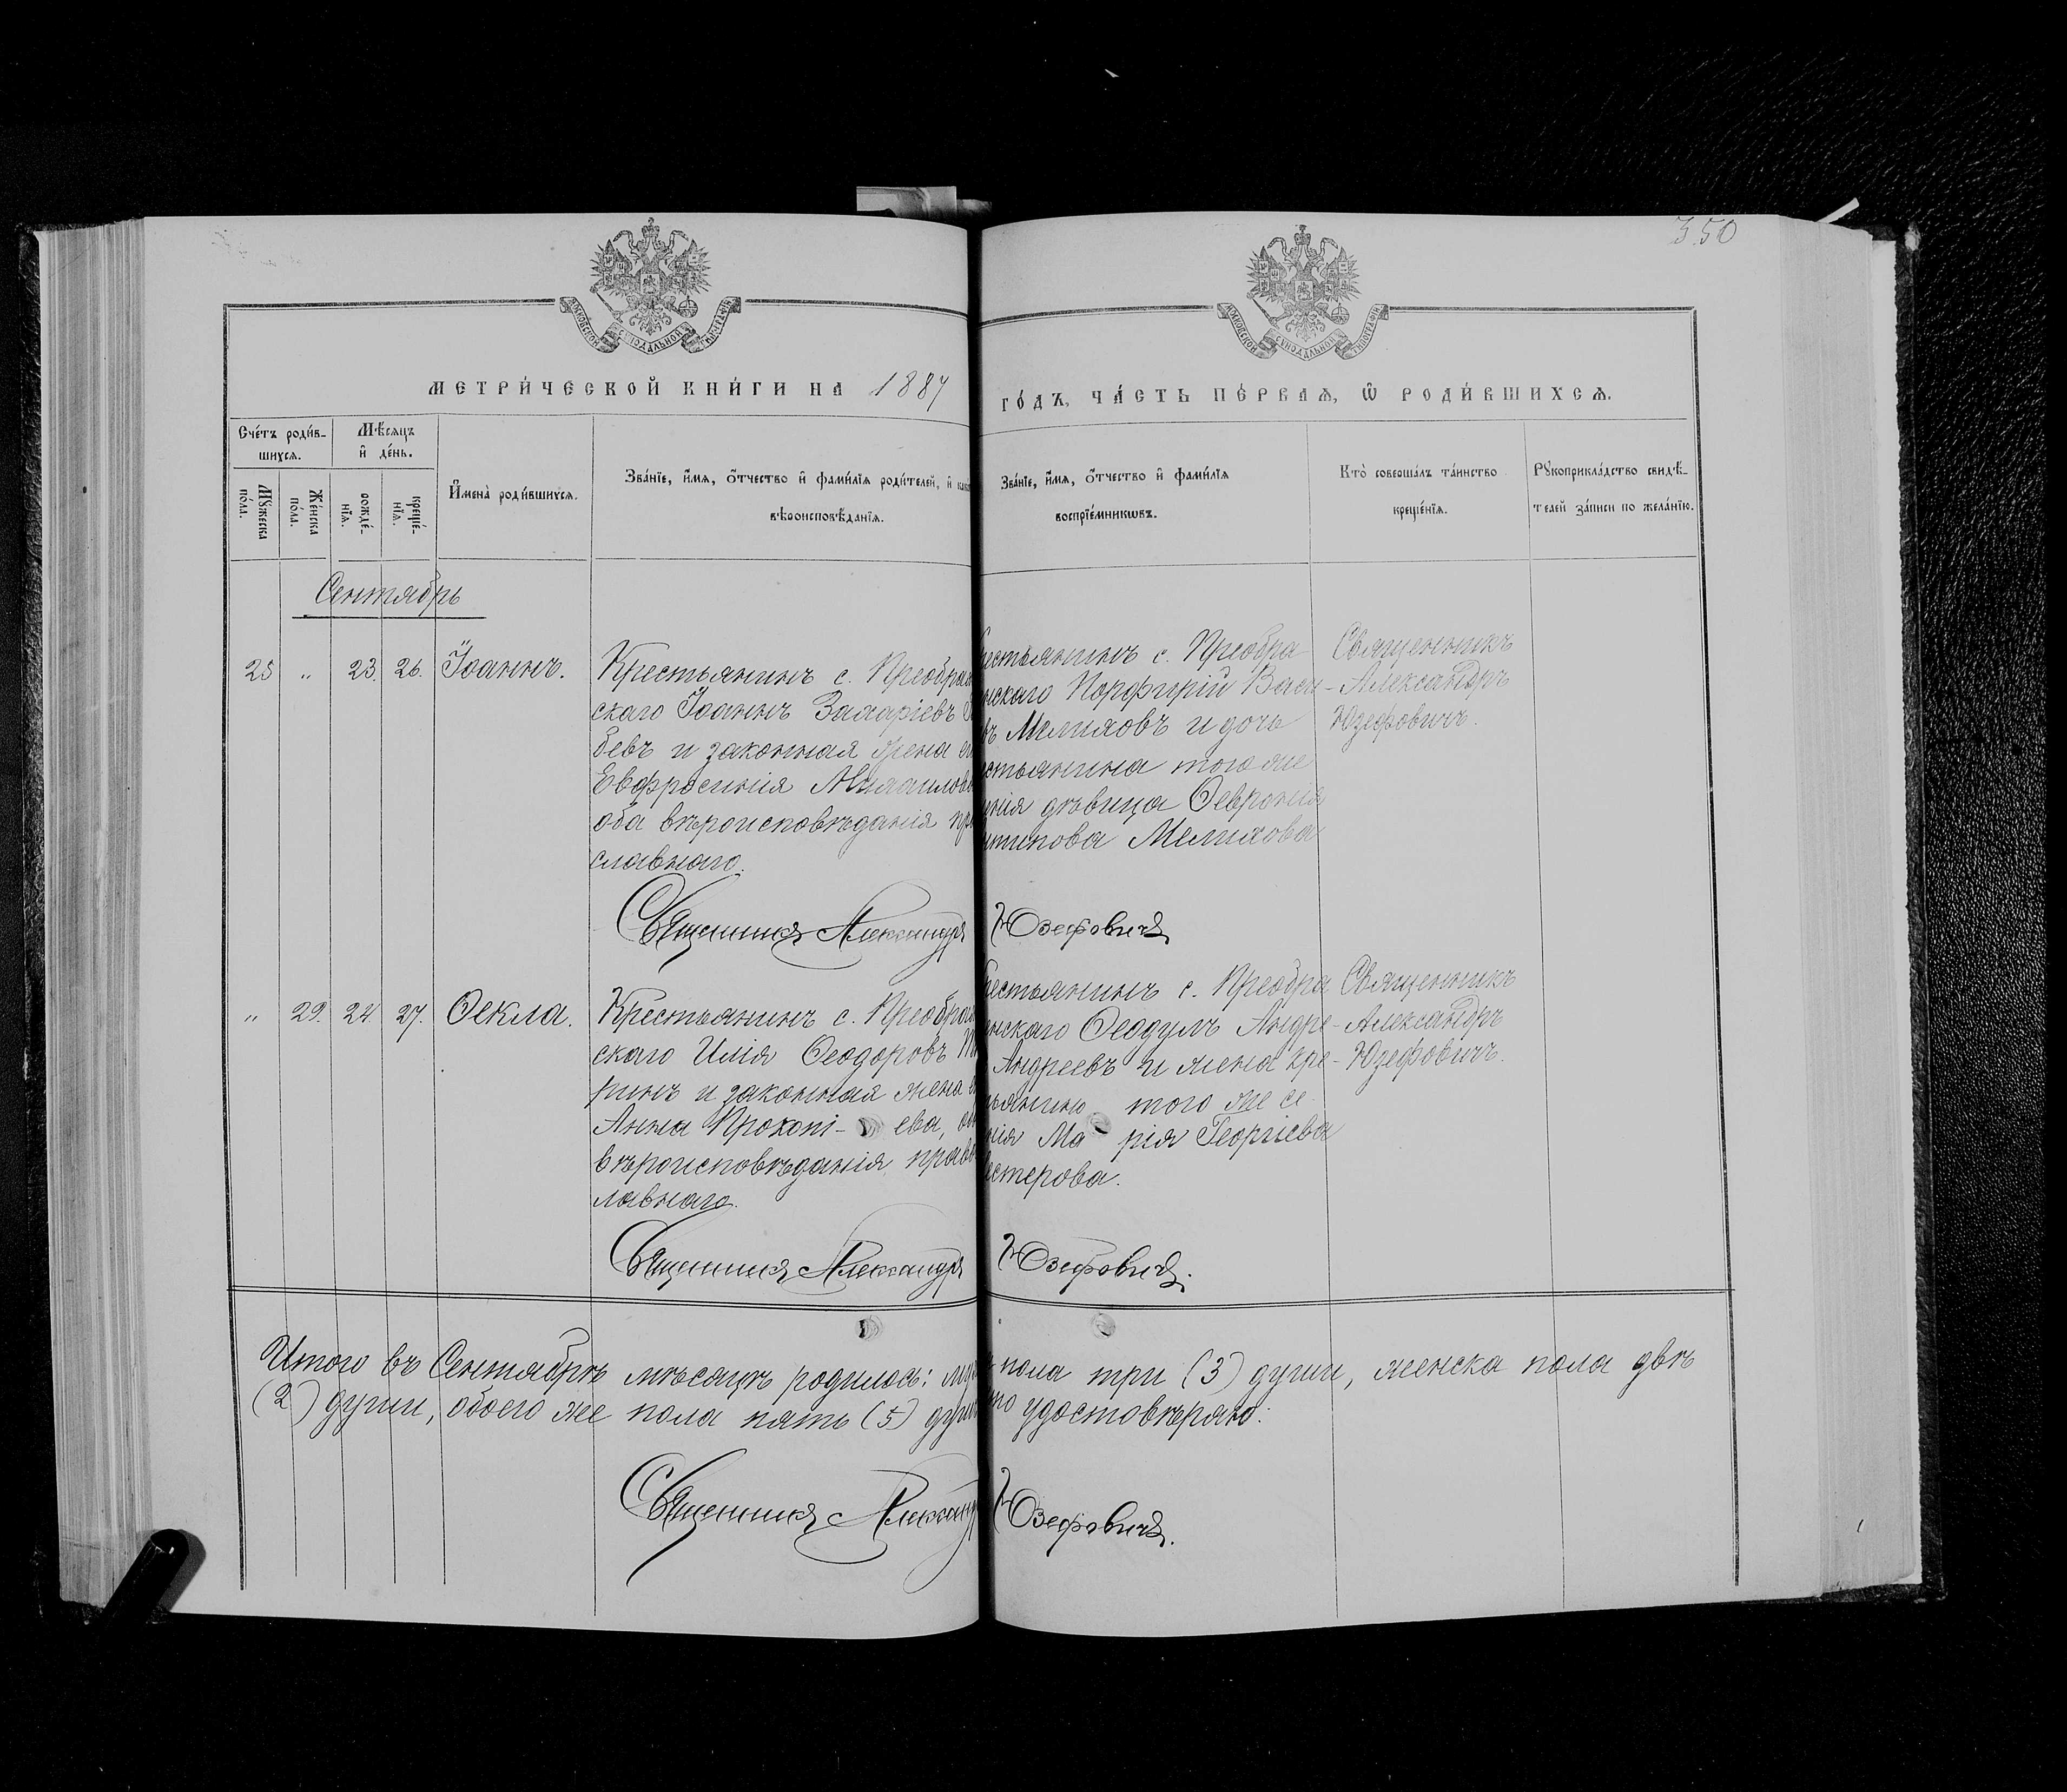 350
МОСКОВСКОЙ СѴНОДАЛЬНОЙ ТѴПОГРАФІИ
МОСКОВСКОЙ СѴНОДАЛЬНОЙ ТѴПОГРАФІИ
МЕТРИ́ЧЕСКОЙ КНИ́ГИ НА 1887
ГО́ДЪ, ЧА́СТЬ ПЕ́РВАѦ, Ѡ҆ РОДИ́ВШИХСѦ.
Сче́тъ роди́в-
шихсѧ.
Мѣ́сѧцъ
и҆ де́нь.
Мꙋ́жеска
по́ла.
Же́нска
по́ла.
рожде́-
нїѧ.
креще́-
нїѧ.
И҆мена̀ роди́вшихсѧ.
Зва́нїе, и҆́мѧ, ѻ҆́тчество и҆ фами́лїѧ роди́телей, и҆
вѣроисповѣ́данїѧ.
Зва́нїе, и҆́мѧ, ѻ҆́тчество и҆ фами́лїѧ
воспрїе́мникѡвъ.
Кто̀ соверша́лъ та́инство
креще́нїѧ.
Рꙋкоприкла́дство свидѣ́-
телей за́писи по жела́нїю.
Сентябрь
25 „ 23. 26. Іоаннъ.
Крестьянинъ с. Преображ
скаго Іоаннъ Захаріевъ
бевъ и законная жена
Евфросинія Михаилов
оба вѣроисповѣданія пр
славнаго.
естьянинъ с. Преобра
нскаго Порфирій Васи-
въ Мелиховъ и дочь
стьянина того же
нія дѣвица Ѳевронія
нтипова Мелихова
Священникъ
Александръ
Юзефовичъ.
Священникъ Александръ Юзефовичъ
„ 29. 24. 27. Ѳекла.
Крестьянинъ с. Преображ
скаго Илія Ѳеодоровъ
ринъ и законная жена
Анна Прокопі- ева,
вѣроисповѣданія правос
лавнаго.
естьянинъ с. Преобра
нскаго Ѳеодулъ Андре-
Андреевъ и жена кре-
ьянина того же се-
нія Ма рія Георгіева
естерова.
Священникъ
Александръ
Юзефовичъ.
Священникъ Александръ Юзефовичъ.
Итого въ Сентябрѣ мѣсяцѣ родилось: муж пола три (3) души, женска пола двѣ
(2) души, обоего же пола пять (5) душ что удостовѣряю:
Священникъ Александръ Юзефовичъ.